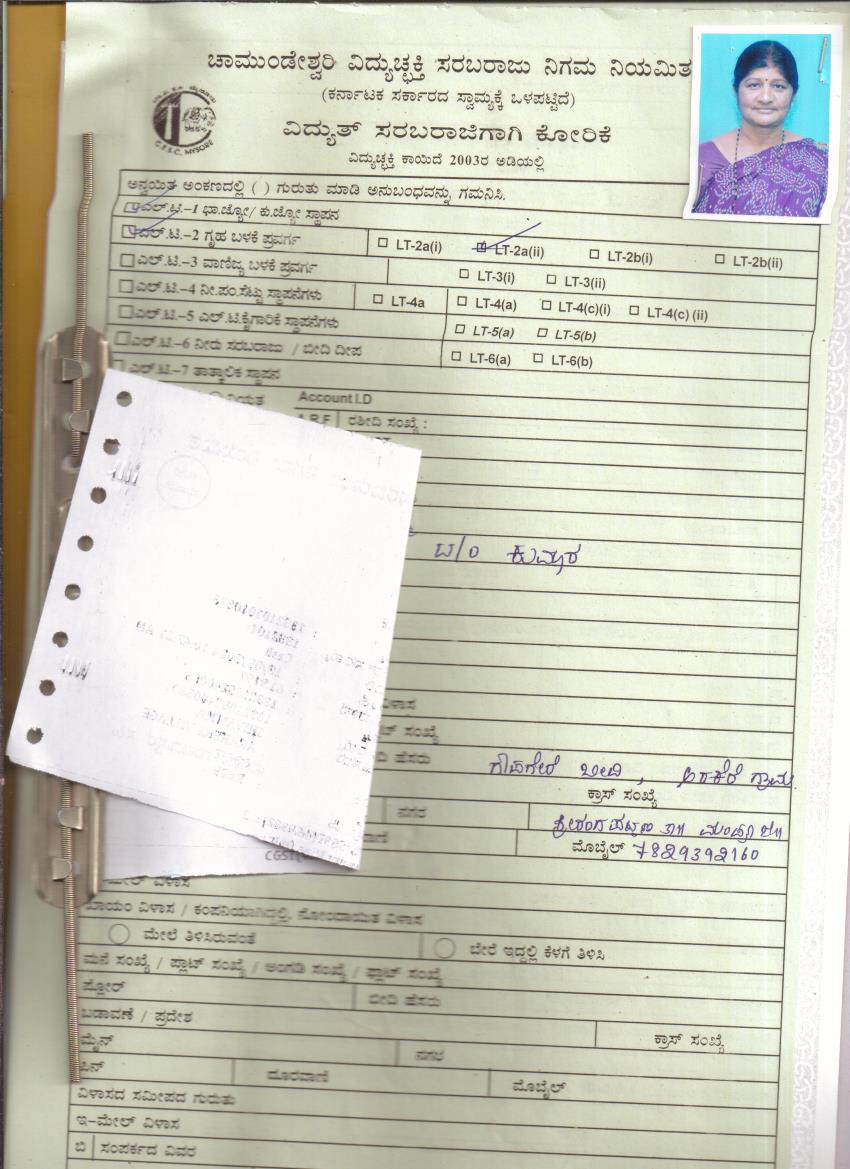 ಚಾಮುಂಡೇಶ್ವರಿ ವಿದ್ಯುಚ್ಛಕ್ತಿ ಸರಬರಾಜು ನಿಗಮ ನಿಯಮಿತ
(ಕರ್ನಾಟಕ ಸರ್ಕಾರದ ಸ್ವಾಮ್ಯಕ್ಕೆ ಒಳಪಟ್ಟಿದೆ)
ವಿದ್ಯುತ್ ಸರಬರಾಜಿಗಾಗಿ ಕೋರಿಕೆ
C.E.S.C, MYSORE
ವಿದ್ಯುಚ್ಛಕ್ತಿ ಕಾಯಿದೆ 2003ರ ಅಡಿಯಲ್ಲಿ
ಅನ್ವಯಿತ ಅಂಕಣದಲ್ಲಿ ( ) ಗುರುತು ಮಾಡಿ ಅನುಬಂಧವನ್ನು ಗಮನಿಸಿ.
ಎಲ್.ಟಿ.-1 ಭಾ.ಜ್ಯೋ/ ಕು.ಜ್ಯೋ ಸ್ಥಾಪನ
ಎಲ್.ಟಿ.-2 ಗೃಹ ಬಳಕೆ ಪ್ರವರ್ಗ LT-2a(i) LT-2a(ii) LT-2b(i) LT-2b(ii)
ಎಲ್.ಟಿ.-3 ವಾಣಿಜ್ಯ ಬಳಕೆ ಪ್ರವರ್ಗ LT-3(i) LT-3(ii)
ಎಲ್.ಟಿ.-4 ನೀ.ಪಂ.ಸೆಟ್ಟು ಸ್ಥಾಪನೆಗಳು LT-4a LT-4(a) LT-4(c)(i) LT-4(c) (ii)
ಎಲ್.ಟಿ.-5 ಎಲ್.ಟಿ.ಕೈಗಾರಿಕೆ ಸ್ಥಾಪನೆಗಳು LT-5(a) LT-5(b)
ಎಲ್.ಟಿ.-6 ನೀರು ಸರಬರಾಜು / ಬೀದಿ ದೀಪ LT-6(a) LT-6(b)
ಎಲ್.ಟಿ.-7 ತಾತ್ಕಾಲಿಕ ಸ್ಥಾಪನ
ನಿಯತ Account I.D
A.R.F ರಶೀದಿ ಸಂಖ್ಯೆ :
ಕುಮಾರ
ವಿಳಾಸ
ಸಂಖ್ಯೆ
ಹೆಸರು ಬೀದಿ , ಅರಕೆರೆ ಗ್ರಾಮ
ಕ್ರಾಸ್ ಸಂಖ್ಯೆ
ನಗರ ಶ್ರೀರಂಗಪಟ್ಟಣ ತಾ॥ ಮಂಡ್ಯ ಜಿ॥
ಮೊಬೈಲ್ 7829392160
CGST
ಮೇಲ್ ವಿಳಾಸ
ಖಾಯಂ ವಿಳಾಸ / ಕಂಪನಿಯಾಗಿದ್ದಲ್ಲಿ, ನೋಂದಾಯಿತ ವಿಳಾಸ
ಮೇಲೆ ತಿಳಿಸಿರುವಂತೆ ಬೇರೆ ಇದ್ದಲ್ಲಿ ಕೆಳಗೆ ತಿಳಿಸಿ
ಮನೆ ಸಂಖ್ಯೆ / ಪ್ಲಾಟ್ ಸಂಖ್ಯೆ / ಅಂಗಡಿ ಸಂಖ್ಯೆ / ಫ್ಲಾಟ್ ಸಂಖ್ಯೆ
ಫ್ಲೋರ್ ಬೀದಿ ಹೆಸರು
ಬಡಾವಣೆ / ಪ್ರದೇಶ ಕ್ರಾಸ್ ಸಂಖ್ಯೆ
ಮೈನ್ ನಗರ
ಪಿನ್ ದೂರವಾಣಿ ಮೊಬೈಲ್
ವಿಳಾಸದ ಸಮೀಪದ ಗುರುತು
ಇ-ಮೇಲ್ ವಿಳಾಸ
ಬಿ ಸಂಪರ್ಕದ ವಿವರ